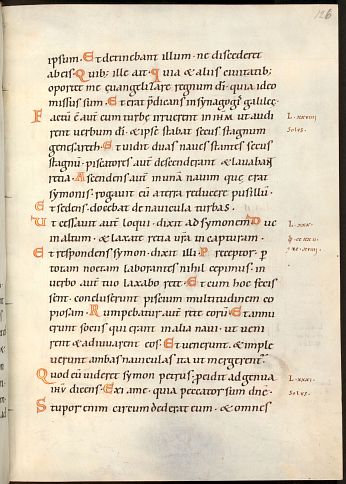 126
ipsum. Et detinebant illum. ne discederet
ab eis. Quib; ille ait. quia & aliis civitatib;
oportet me euangelizare regnum dī. quia ideo
missus sum. Et erat p̄dicans in synagogis galileę.
Factū ē aut̄ cum turbę irruerent in ihm̄ ut audi
rent verbum dī. & ipse stabat secus stagnum
genesareth. Et vidit duas naves stantes secus
stagnū. piscatores aut̄ descenderant & lavabant
retia. Ascendens aut̄ in unā navim que erat
symonis. rogavit eū a terra reducere pusillū.
Et sedens. docebat de navicula turbas.
Ut cessavit aut̄ loqui. dixit ad symonem. Duc
in altum. & laxate retia vr̄a in capturam.
Et respondens symon. dixit illi. Preceptor. p
totam noctem laborantes nihil cepimus. in
verbo aut̄ tuo laxabo rete. Et cum hoc fecis
sent. concluserunt piscium multitudinem co
piosam. Rumpebatur aut̄ rete eorū. Et annu
erunt sociis qui erant in alia navi. ut veni
rent & adiuvarent eos. Et venerunt. & imple
verunt ambas naviculas ita ut mergerent̄.
Quod cū videret symon petrus. p̄cidit ad genua
ihv̄ dicens. Exi a me. quia peccator sum dn̄e.
Stupor enim circumdederat eum. & omnes
L. xxviiii
Solus.
L. xxx.
L. xxxi.
Solus.